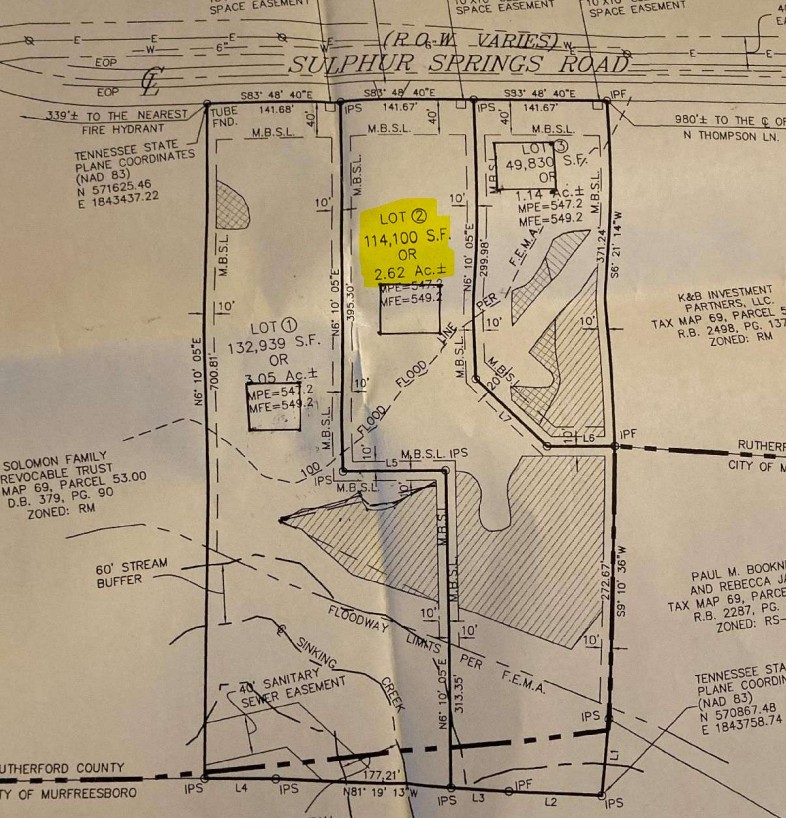 SPACE EASEMENT
SPACE EASEMENT
SPACE EASEMENT
E
E
E
E
E
W
6"
W
W
(R.O.W. VARIES)
SULPHUR SPRINGS ROAD
EOP
EOP
℄
S83° 48' 40"E
141.67'
S83° 48' 40"E
141.67'
S83° 48' 40"E
141.68'
IPS
IPS
IPF
TUBE
FND.
339'± TO THE NEAREST
FIRE HYDRANT
980'± TO THE ℄ OF
N THOMPSON LN.
TENNESSEE STATE
PLANE COORDINATES
(NAD 83)
N 571625.46
E 1843437.22
M.B.S.L.
40'
M.B.S.L.
40'
M.B.S.L.
40'
LOT ③
49,830 S.F.
OR
1.14 Ac.±
MPE=547.2
MFE=549.2
LOT ②
114,100 S.F.
OR
2.62 Ac.±
MPE=547.2
MFE=549.2
LOT ①
132,939 S.F.
OR
3.05 Ac.±
MPE=547.2
MFE=549.2
M.B.S.L.
M.B.S.L.
M.B.S.L.
M.B.S.L.
10'
10'
10'
10'
10'
10'
N6° 10' 05"E
700.81'
N6° 10' 05"E
395.30'
N6° 10' 05"E
299.98'
S6° 21' 14"W
371.24'
K&B INVESTMENT
PARTNERS, LLC.
TAX MAP 69, PARCEL
R.B. 2498, PG. 137
ZONED: RM
100
FLOOD
FLOOD
LINE
PER
F.E.M.A.
M.B.S.L.
M.B.S.L.
M.B.S.L.
20'
L7
10'
L6
IPF
RUTHERF
CITY OF M
SOLOMON FAMILY
REVOCABLE TRUST
MAP 69, PARCEL 53.00
D.B. 379, PG. 90
ZONED: RM
IPS
10'
L5
M.B.S.L.
IPS
M.B.S.L.
10'
M.B.S.L.
M.B.S.L.
60' STREAM
BUFFER
FLOODWAY LIMITS PER F.E.M.A.
℄ SINKING
CREEK
40' SANITARY
SEWER EASEMENT
10'
10'
10'
N6° 10' 05"E
313.35'
S9° 10' 36"W
272.67'
PAUL M. BOOKN
AND REBECCA JA
TAX MAP 69, PARCE
R.B. 2287, PG.
ZONED: RS-
TENNESSEE STA
PLANE COORDIN
(NAD 83)
N 570867.48
E 1843758.74
IPS
L1
UTHERFORD COUNTY
TY OF MURFREESBORO
IPS
L4
IPS
177.21'
N81° 19' 13"W
IPS
L3
IPF
L2
IPS